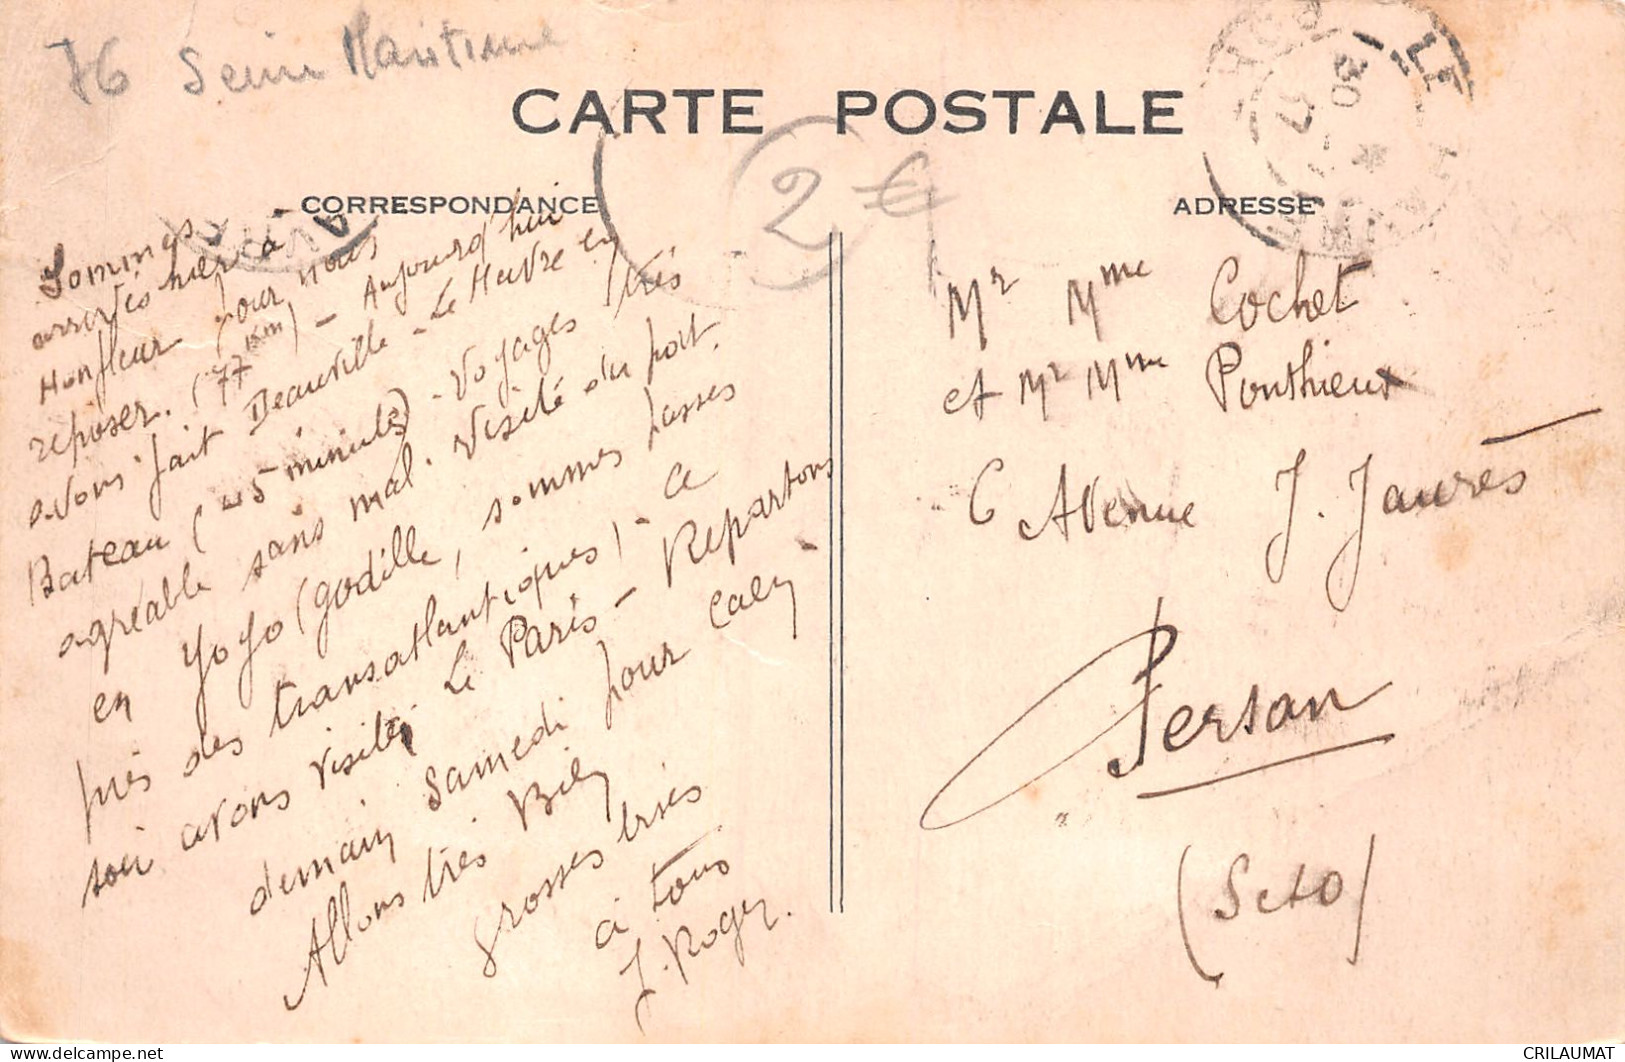 76 Seine Maritime
CARTE POSTALE
2€
CORRESPONDANCE
ADRESSE
LE
Sommes
arrivés hier à
Honfleur pour nous
reposer. (77 Km) - Aujourd'hui
avons fait Deauville - Le Havre en
Bateau (45 minutes) - Voyages très
agréable sans mal. Visité du port.
en YoYo (godille, sommes passes
près des transatlantiques) - ce
soir avons visité Le Paris - Repartons
demain Samedi pour Caen
Allons très Bien
grosses bises
à tous
J. Roger.
Mr Mme Cochet
et Mr Mme Ponthieux
6 Avenue J. Jaurès
Persan
(S et O)
CRILAUMAT